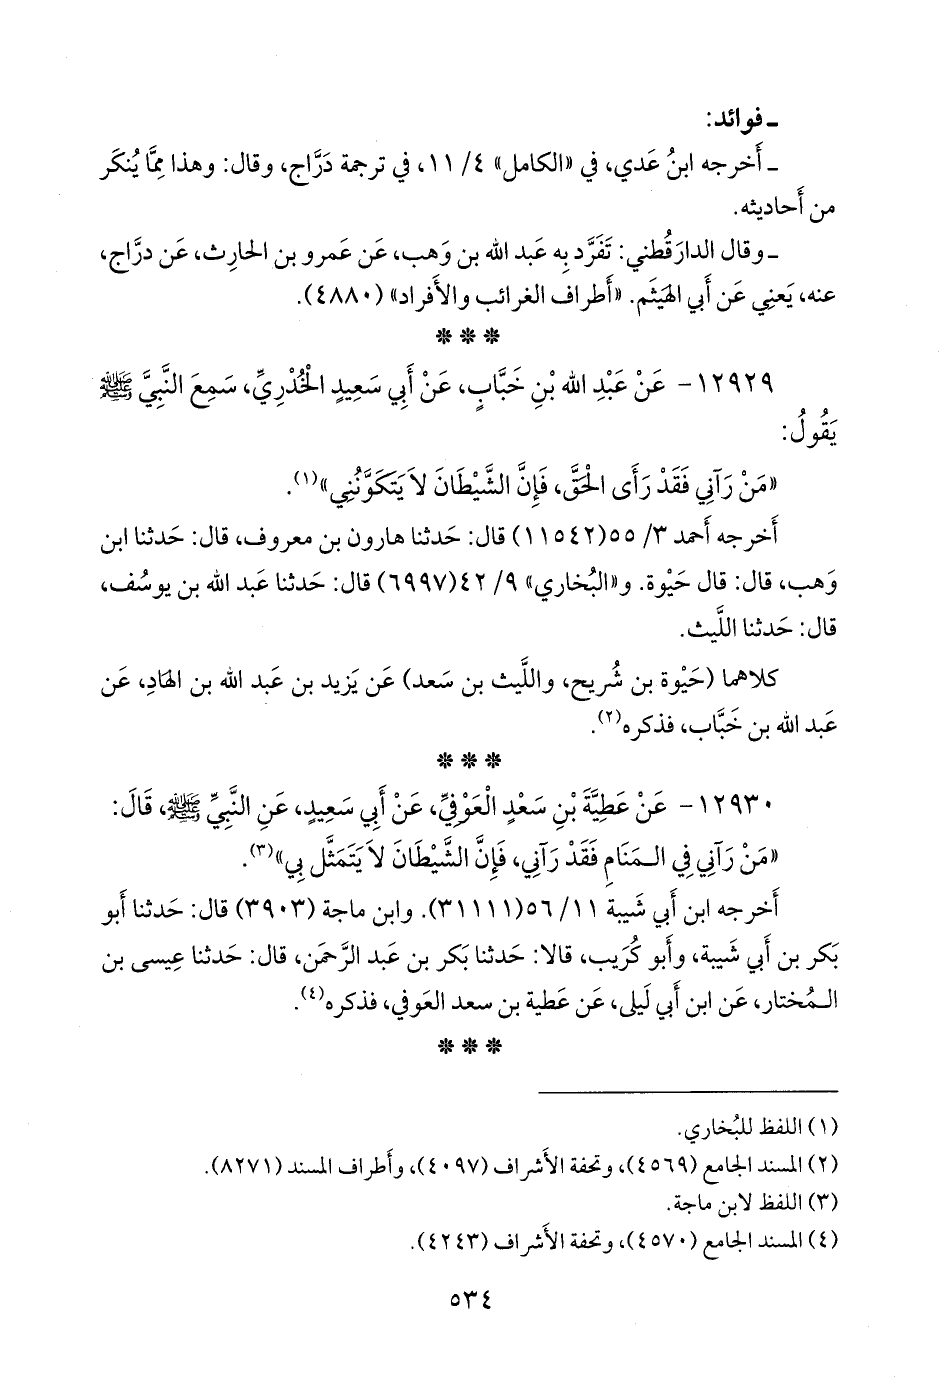 ـ فوائد:
ـ أَخرجه ابنُ عَدي، في «الكامل» ٤/ ١١، في ترجمة دَرَّاج، وقال: وهذا مِمَّا يُنكَر
من أَحاديثه.
ـ وقال الدارَقُطني: تَفَرَّد بِه عَبد الله بن وَهب، عَن عَمرو بن الحارِث، عَن درَّاج،
عنه، يَعنِي عَن أَبي الهَيثَم. «أَطراف الغرائب والأَفراد» (٤٨٨٠).
* * *
١٢٩٢٩- عَنْ عَبْدِ الله بْنِ خَبَّابٍ، عَنْ أَبِي سَعِيدٍ الْخُدْرِيِّ، سَمِعَ النَّبِيَّ ﷺ
يَقُولُ:
«مَنْ رَآنِي فَقَدْ رَأَى الْحَقَّ، فَإِنَّ الشَّيْطَانَ لاَ يَتَكَوَّنُنِي»(١).
أَخرجه أَحمد ٣/ ٥٥(١١٥٤٢) قال: حَدثنا هارون بن معروف، قال: حَدثنا ابن
وَهب، قال: قال حَيْوة. و«البُخاري» ٩/ ٤٢(٦٩٩٧) قال: حَدثنا عَبد الله بن يوسُف،
قال: حَدثنا اللَّيث.
كلاهما (حَيْوة بن شُريح، واللَّيث بن سَعد) عَن يَزيد بن عَبد الله بن الهَادِ، عَن
عَبد الله بن خَبَّاب، فذكره(٢).
* * *
١٢٩٣٠- عَنْ عَطِيَّةَ بْنِ سَعْدٍ الْعَوْفِيِّ، عَنْ أَبِي سَعِيدٍ، عَنِ النَّبِيِّ ﷺ، قَالَ:
«مَنْ رَآنِي فِي الـمَنَامِ فَقَدْ رَآنِي، فَإِنَّ الشَّيْطَانَ لاَ يَتَمَثَّلُ بِي»(٣).
أَخرجه ابن أَبي شَيبة ١١/ ٥٦(٣١١١١). وابن ماجة (٣٩٠٣) قال: حَدثنا أَبو
بَكر بن أَبي شَيبة، وأَبو كُرَيب، قالا: حَدثنا بَكر بن عَبد الرَّحمَن، قال: حَدثنا عِيسى بن
الـمُختار، عَن ابن أَبي لَيلى، عَن عَطية بن سعد العَوفي، فذكره(٤).
* * *
(١) اللفظ للبُخاري.
(٢) المسند الجامع (٤٥٦٩)، وتحفة الأَشراف (٤٠٩٧)، وأَطراف المسند (٨٢٧١).
(٣) اللفظ لابن ماجة.
(٤) المسند الجامع (٤٥٧٠)، وتحفة الأَشراف (٤٢٤٣).
٥٣٤